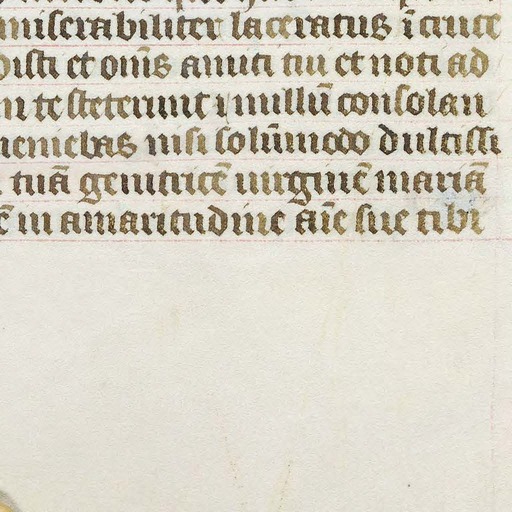 miserabiliter laceratus ī cruce
disti et om̄s amici tui et noti ad
te steterunt ⁊ nullū consolan
niebas nisi solūmodo dulcissi
tuā genitricē uirginē mariā
in amaritudine aīe sue tibi